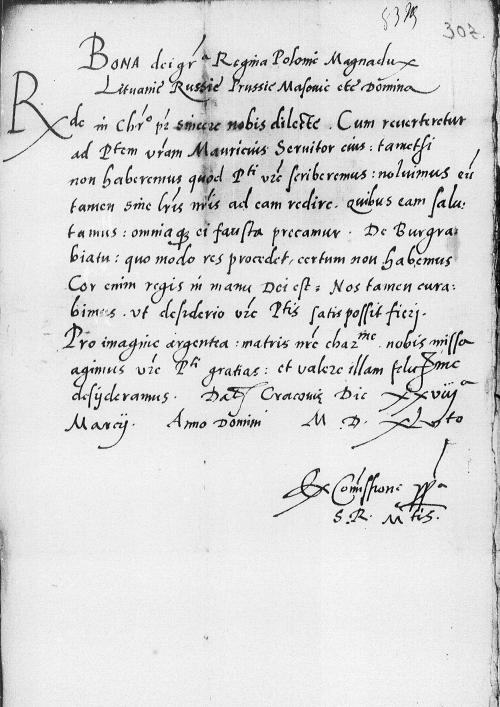 307.
BONA dei gr̃a Regina Poloniẽ Magnadux
Lituaniẽ Russiẽ Prussiẽ Masoviẽ etc̃ Domina
Rde in Chr̃o pr̃ sincere nobis dilecte. Cum reverteretur
ad Ptem vr̃am Mauricius Servitor eius: tametsi
non haberemus quod Pti vr̃e scriberemus: noluimus eũ
tamen sine lr̃is nr̃is ad eam redire. Quibus eam salu-
tamus: omniaq; ei fausta precamur. De Burgra-
biatu: quo modo res procedet, certum non habemus
Cor enim regis in manu Dei est: Nos tamen cura-
bimus. ut desiderio vr̃e Ptis satis possit fieri.
Pro imagine argentea: matris nr̃e chazme. nobis missa
agimus vr̃e Pti gratias: et valere illam felicme
desyderamus. Dat Cracoviẽ Die xxviija
Marcij. Anno Domini M. D. xL
Ex Comissione ppa
S. R. Mtis.